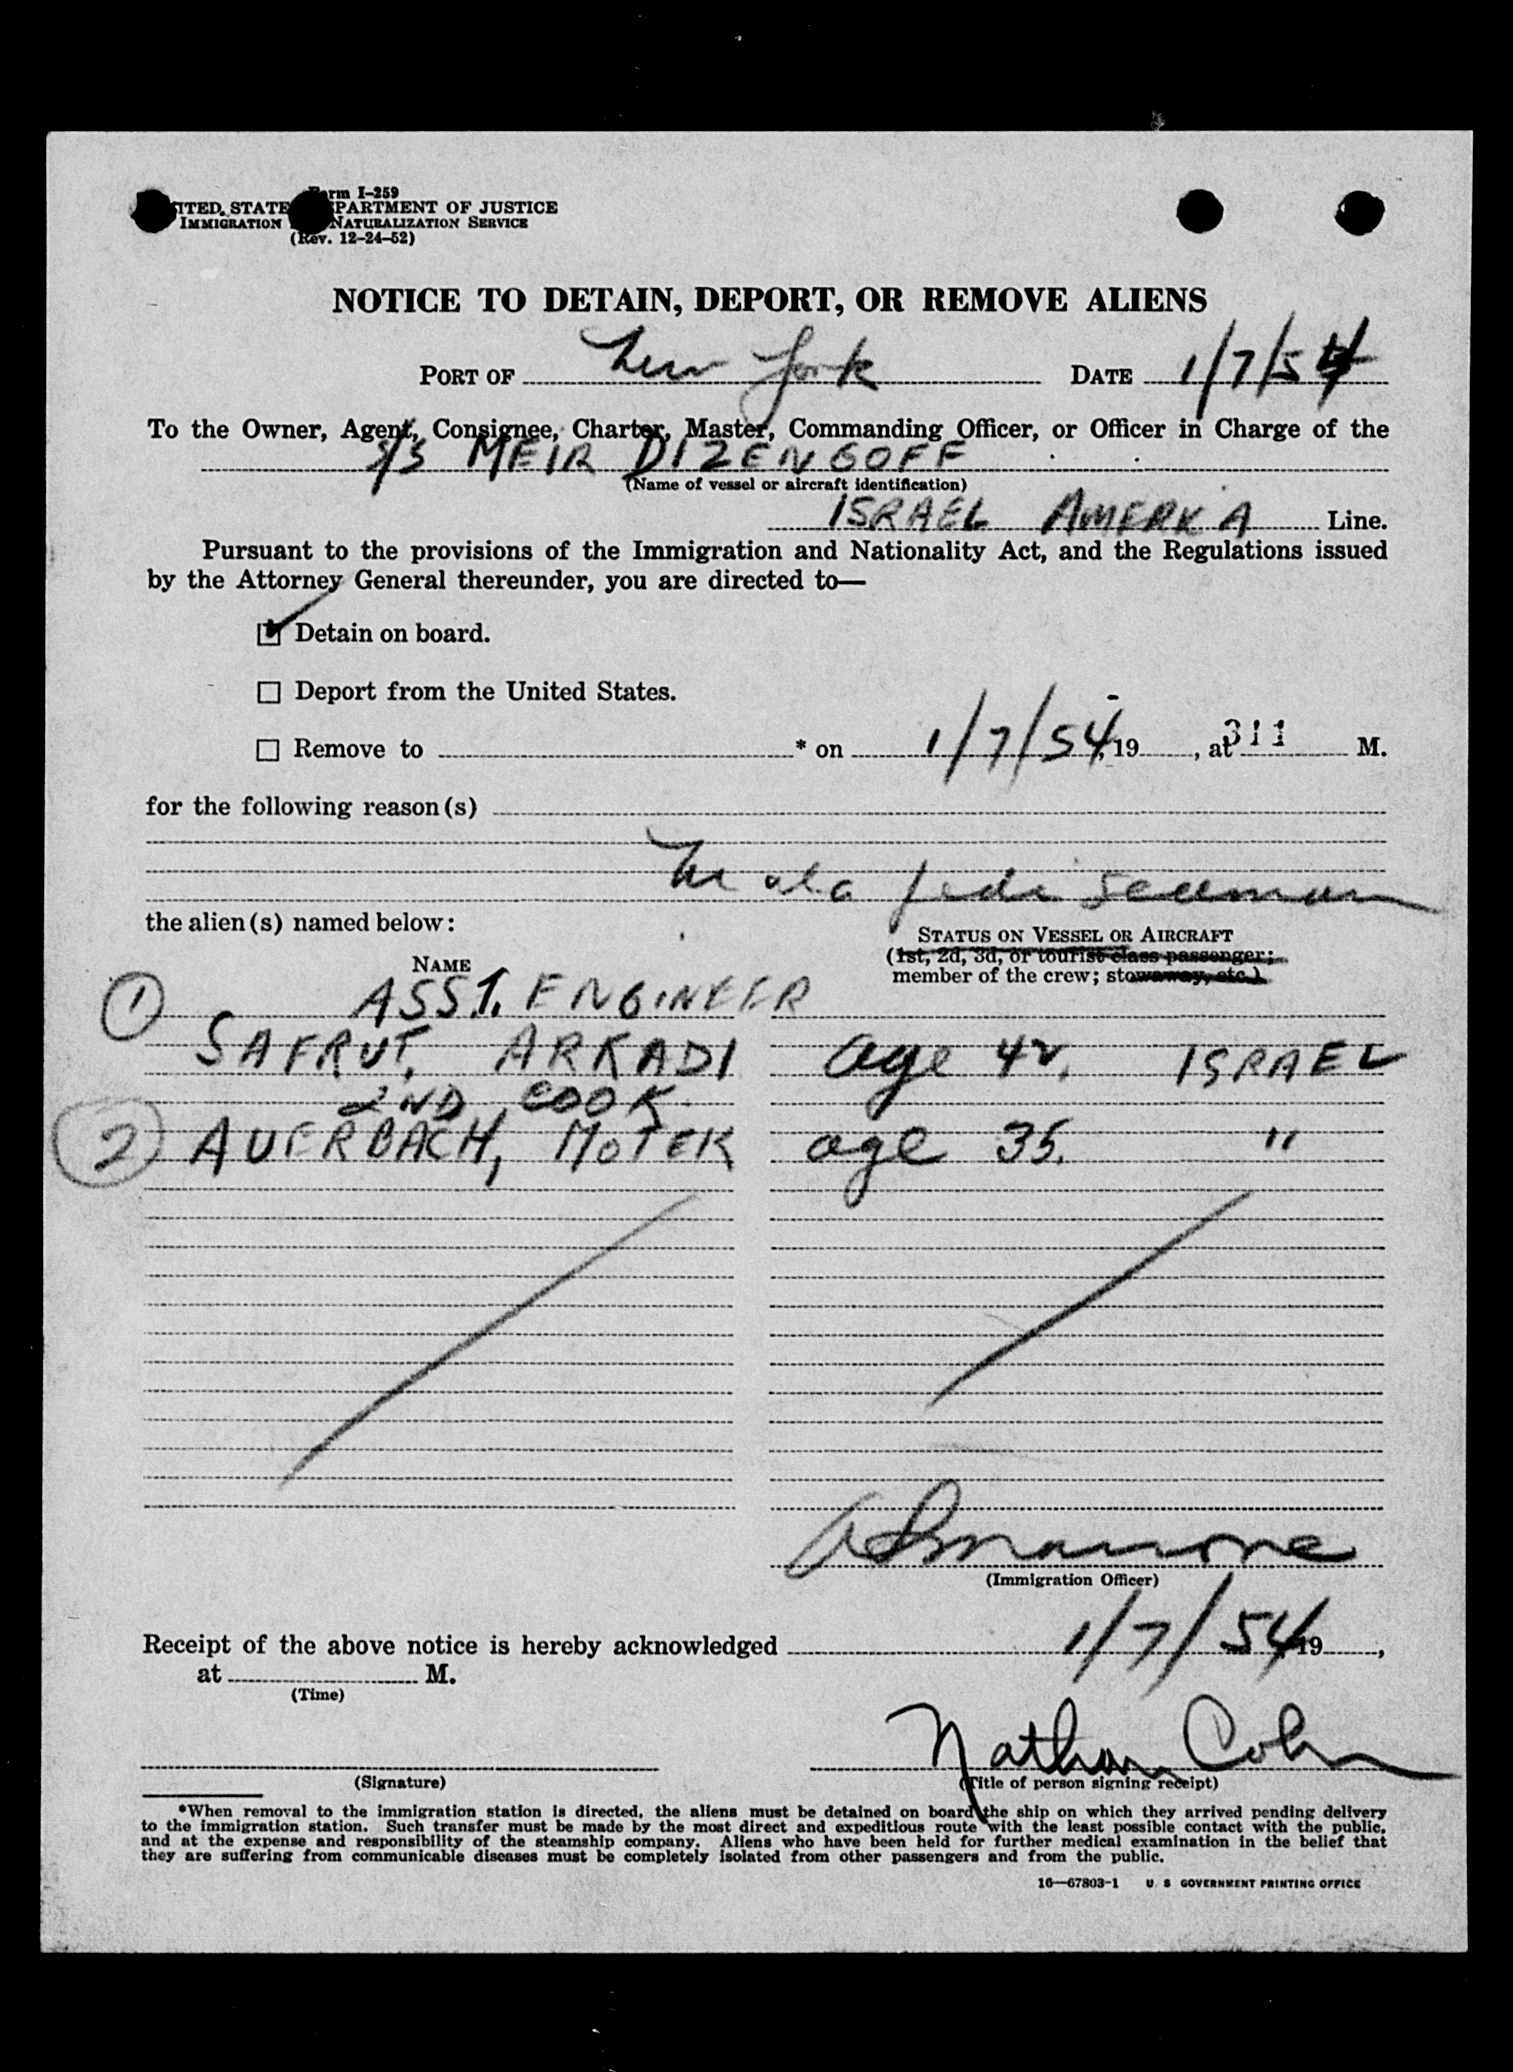 Form I-259
UNITED STATES DEPARTMENT OF JUSTICE
IMMIGRATION NATURALIZATION SERVICE
(Rev. 12-24-52)
NOTICE TO DETAIN, DEPORT, OR REMOVE ALIENS
PORT OF New York DATE 1/7/54
To the Owner, Agent, Consignee, Charter, Master, Commanding Officer, or Officer in Charge of the
S/S MEIR DIZENGOFF
(Name of vessel or aircraft identification)
ISRAEL AMERKA Line.
Pursuant to the provisions of the Immigration and Nationality Act, and the Regulations issued
by the Attorney General thereunder, you are directed to—
Detain on board.
Deport from the United States.
Remove to * on 1/7/54, 19 , at 311 M.
for the following reason(s)
Mala fide seaman
the alien(s) named below:
STATUS ON VESSEL OR AIRCRAFT
(1st, 2d, 3d, or tourist class passenger;
member of the crew; stowaway, etc.)
NAME
1 ASST. ENGINEER
SAFRUT, ARKADI age 42. ISRAEL
2ND COOK
2 AUERBACH, MOTEK age 35. "
(Immigration Officer)
Receipt of the above notice is hereby acknowledged 1/7/54 19 ,
at M.
(Time)
Nathan Cohn
(Signature) (Title of person signing receipt)
*When removal to the immigration station is directed, the aliens must be detained on board the ship on which they arrived pending delivery
to the immigration station. Such transfer must be made by the most direct and expeditious route with the least possible contact with the public,
and at the expense and responsibility of the steamship company. Aliens who have been held for further medical examination in the belief that
they are suffering from communicable diseases must be completely isolated from other passengers and from the public.
16—67803-1 U S GOVERNMENT PRINTING OFFICE